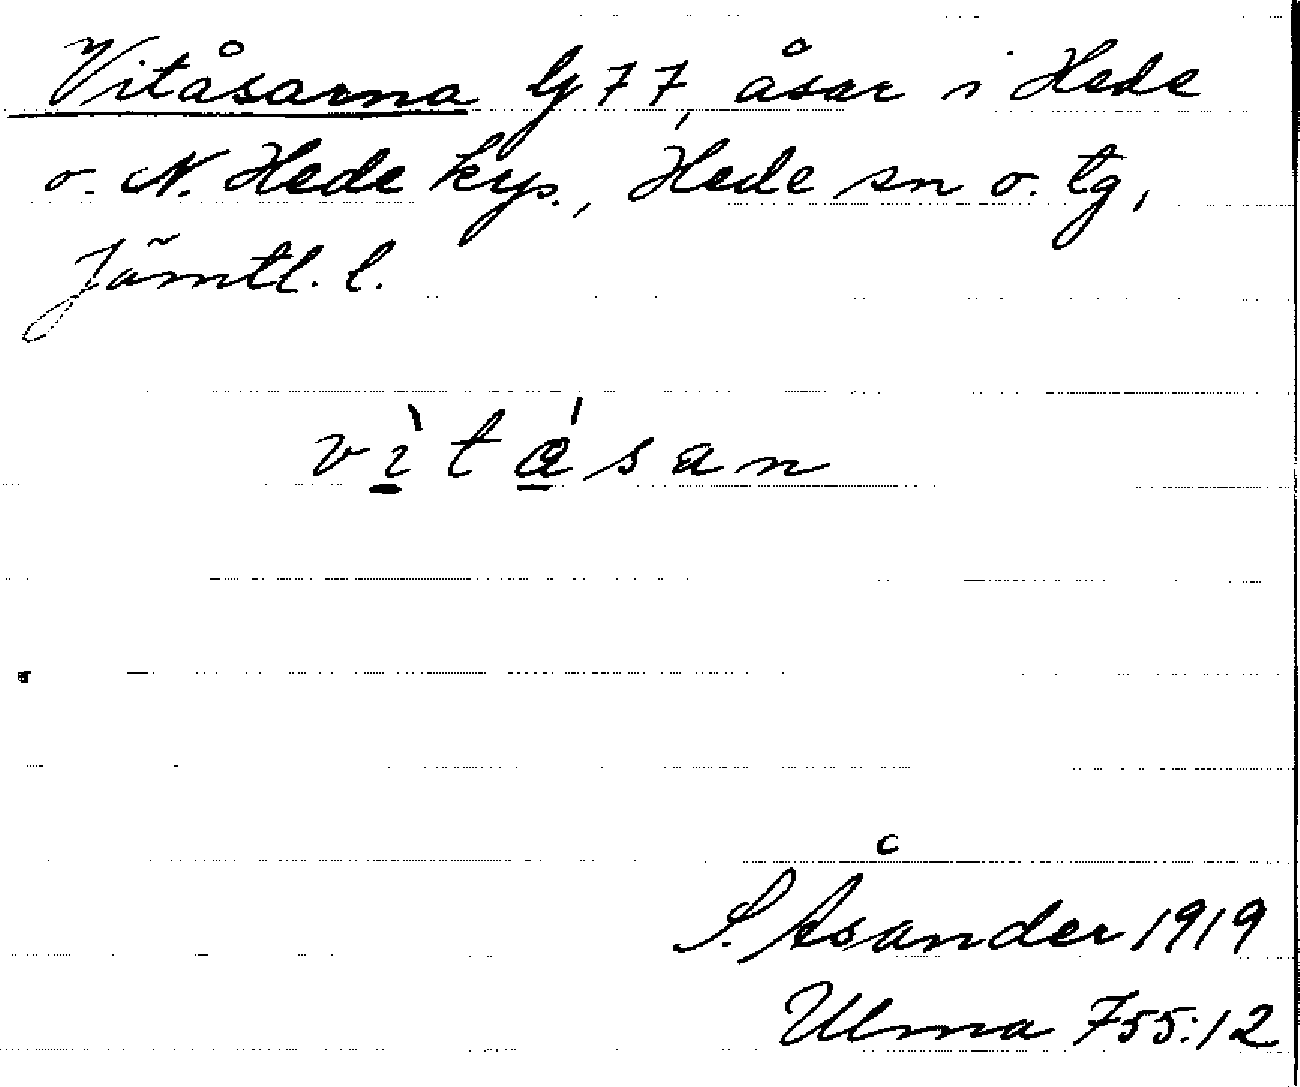 Vitåsarna lg 77, åsar i Hede
o. N. Hede kys., Hede sn o. tg,
Jämtl. l.
vìtåsan
S. Åsander 1919
Ulma 755:12